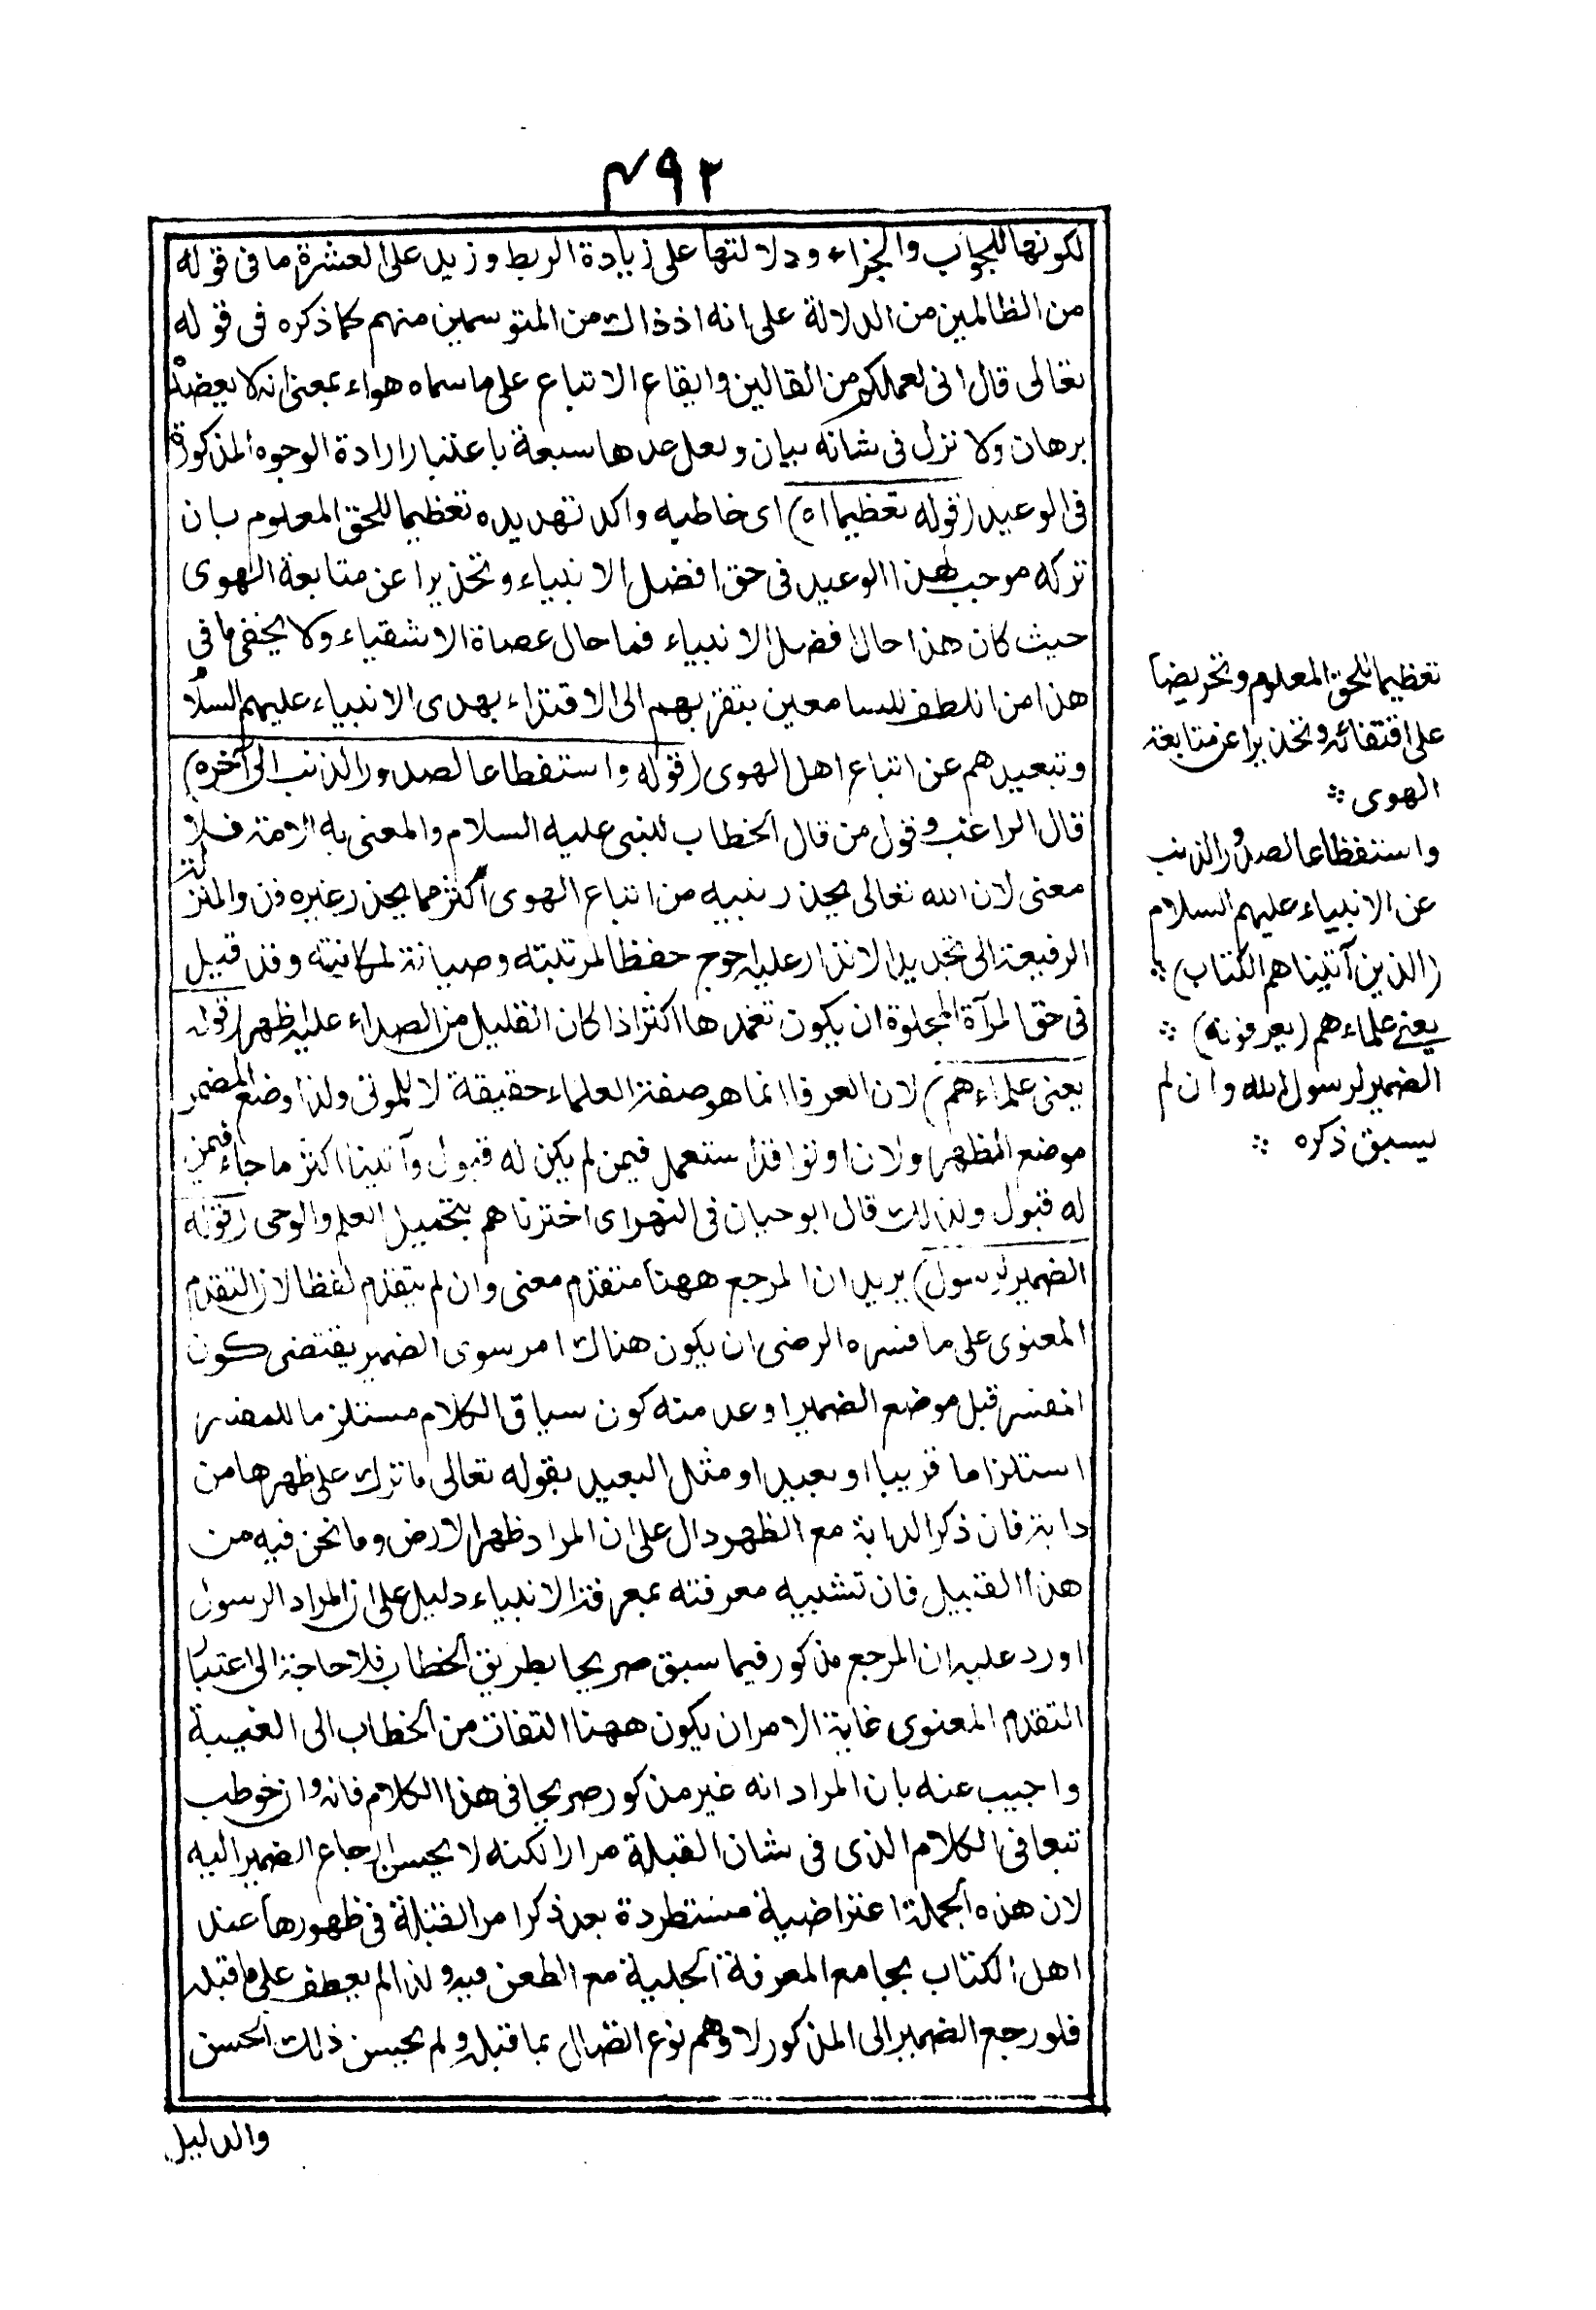 ٤٩٢
لكونها للجواب والجزاء ودلالتها على زيادة الربط وزيد على العشرة ما فى قوله
من الظالمين من الدلالة على انه اذ ذاك من المتوسمين منهم كما ذكره فى قوله
تعالى قال انى لعملكم من القالين وايقاع الاتباع على ما سماه هواء بمعنى انه لا يعضده
برهان ولا نزل فى شانه بيان ولعل عدها سبعة باعتبار ارادة الوجوه المذكورة
فى الوعيد (قوله تعظيما اه) اى خاطبه واكد تهديده تعظيما للحق المعلوم بان
تركه موجب لهذا الوعيد فى حق افضل الانبياء وتحذيرا عن متابعة الهوى
حيث كان هذا حال افضل الانبياء فما حال عصاة الاشقياء ولا يخفى ما فى
هذا من اللطف للسامعين بتقربهم الى الاقتداء بهدى الانبياء عليهم السلام
وتبعيدهم عن اتباع اهل الهوى (قوله واستفظاعا لصدور الذنب الى آخره)
قال الراغب وقول من قال الخطاب للنبى عليه السلام والمعنى به الامة فلا
معنى لان الله تعالى يحذر نبيه من اتباع الهوى اكثر مما يحذر غيره فذو المنزلة
الرفيعة الى تجديد الانذار عليه احوج حفظا لمرتبته وصيانة لمكانته وقد قيل
فى حق المرآة المجلوة ان يكون تعهدها اكثر اذا كان القليل من الصداء عليه اظهر (قوله
يعنى علماءهم) لان العرفان انما هو صفة العلماء حقيقة لا للموتى ولذا وضع المضمر
موضع المظهر اولان اوتوا قد استعمل فيمن لم يكن له قبول وآتينا اكثر ما جاء فيمن
له قبول ولذلك قال ابو حيان فى النهر اى اخترناهم بتحميل العلم والوحى (قوله
الضمير لرسول) يريد ان المرجع ههنا متقدم معنى وان لم يتقدم لفظا لان التقدم
المعنوى على ما فسره الرضى ان يكون هناك امر سوى الضمير يقتضى كون
المفسر قبل موضع الضمير او عد منه كون سياق الكلام مستلزما للمفسر
استلزاما قريبا او بعيدا ومثل البعيد بقوله تعالى ما ترك على ظهرها من
دابة فان ذكر الدابة مع الظهر دال على ان المراد ظهر الارض وما نحن فيه من
هذا القبيل فان تشبيه معرفته بمعرفة الانبياء دليل على ان المراد الرسول
اورد عليه ان المرجع مذكور فيما سبق صريحا بطريق الخطاب فلا حاجة الى اعتبار
التقدم المعنوى غاية الامر ان يكون ههنا التفات من الخطاب الى الغيبة
واجيب عنه بان المراد انه غير مذكور صريحا فى هذا الكلام فانه وان خوطب
تبعا فى الكلام الذى فى شان القبلة مرارا لكنه لا يحسن ارجاع الضمير اليه
لان هذه الجملة اعتراضية مستطردة بعد ذكر امر القبلة فى ظهورها عند
اهل الكتاب بجامع المعرفة الجلية مع الطعن فيه ولذا لم يعطف على ما قبله
فلو رجع الضمير الى المذكور لاوهم نوع اتصال بما قبله ولم يحسن ذلك الحسن
والدليل
تعظيما للحق المعلوم وتحريضا
على اقتفائه وتحذيرا عن متابعة
الهوى
واستفظاعا لصدور الذنب
عن الانبياء عليهم السلام
(الذين آتيناهم الكتاب)
يعنى علماءهم (يعرفونه)
الضمير لرسول الله وان لم
يسبق ذكره